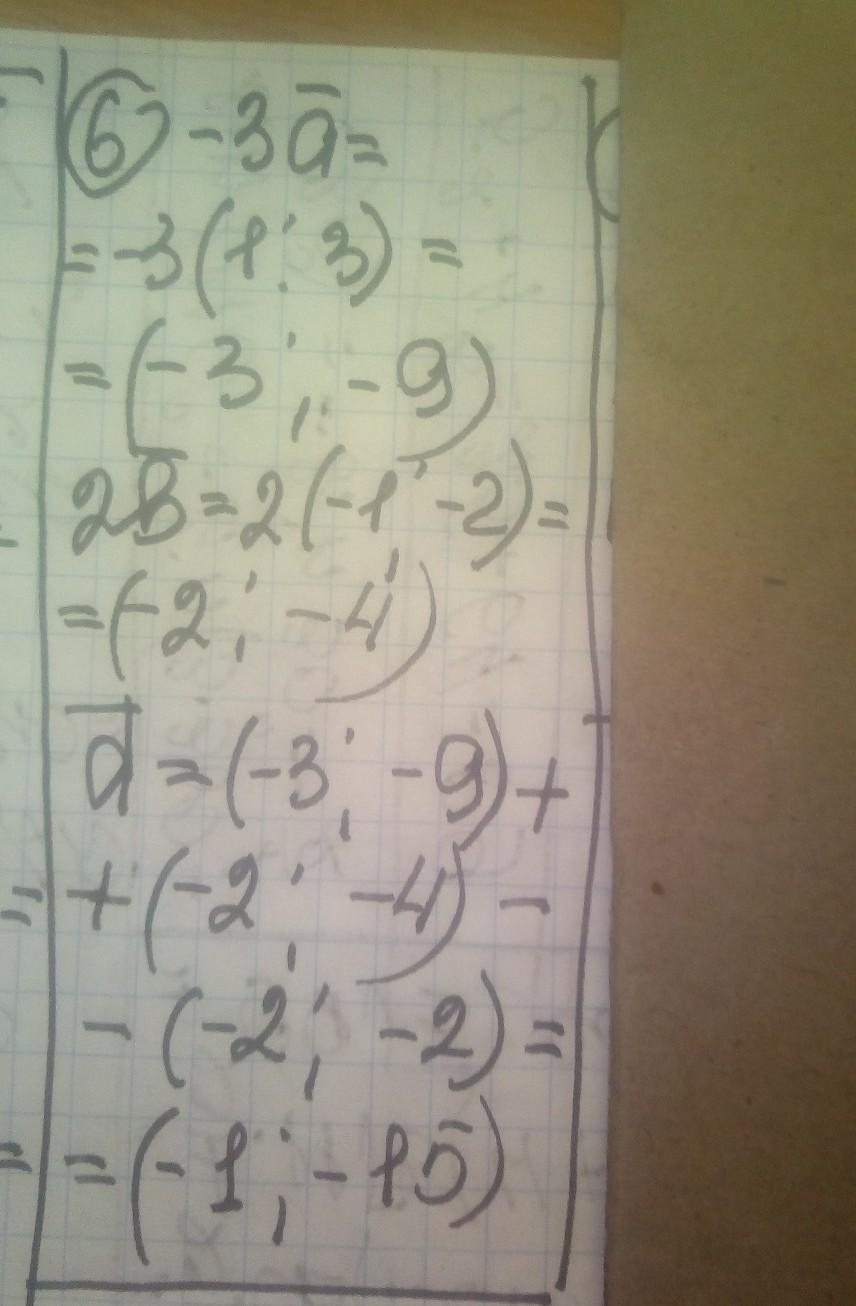 6 -3a̅=
=-3(1; 3) =
=(-3; -9)
2b̅=2(-1; -2)=
=(-2; -4)
d̅=(-3; -9)+
+(-2; -4)-
-(-2; -2)=
=(-1; -15)